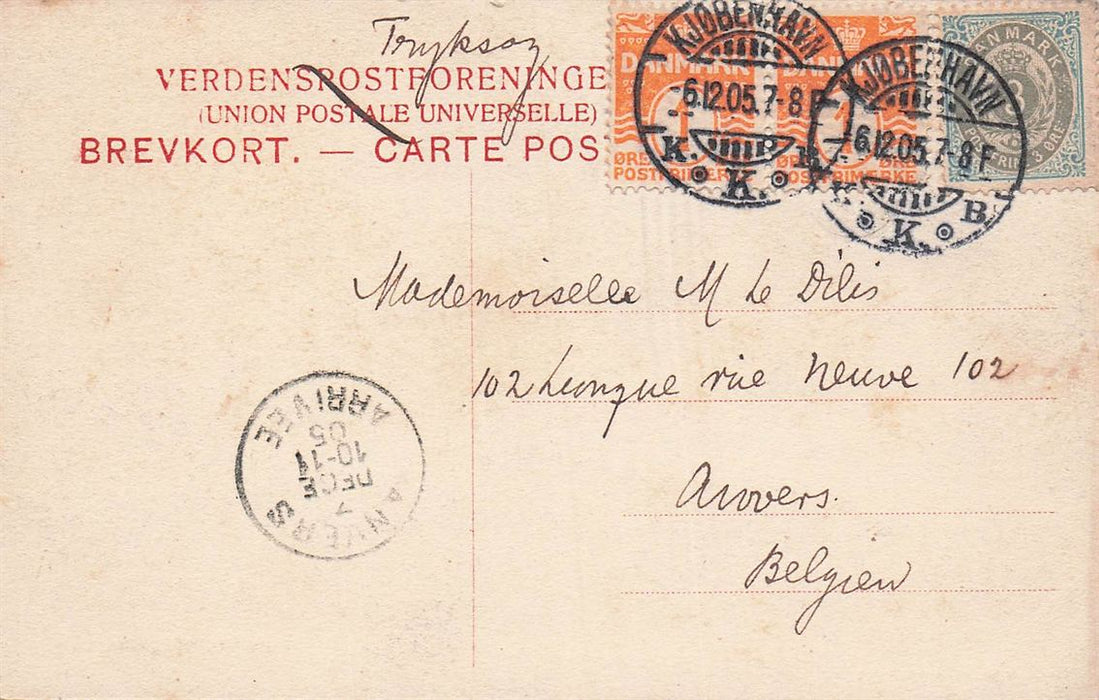 Tryksag
VERDENSPOSTFORENINGE
(UNION POSTALE UNIVERSELLE)
BREVKORT. — CARTE POS
DANMARK
1
ØRE
POSTFRIMÆRKE
DANMARK
1
ØRE
POSTFRIMÆRKE
DANMARK
3
POSTFRIM 3 ØRE
KJØBENHAVN
6.12.05.7-8F
K. K. B.
KJØBENHAVN
6.12.05.7-8F
K. K. B.
Mademoiselle M Le Dilis
102 Longue rue Neuve 102
Anvers.
Belgien
ANVERS
7
DECE
10-11
05
ARRIVEE